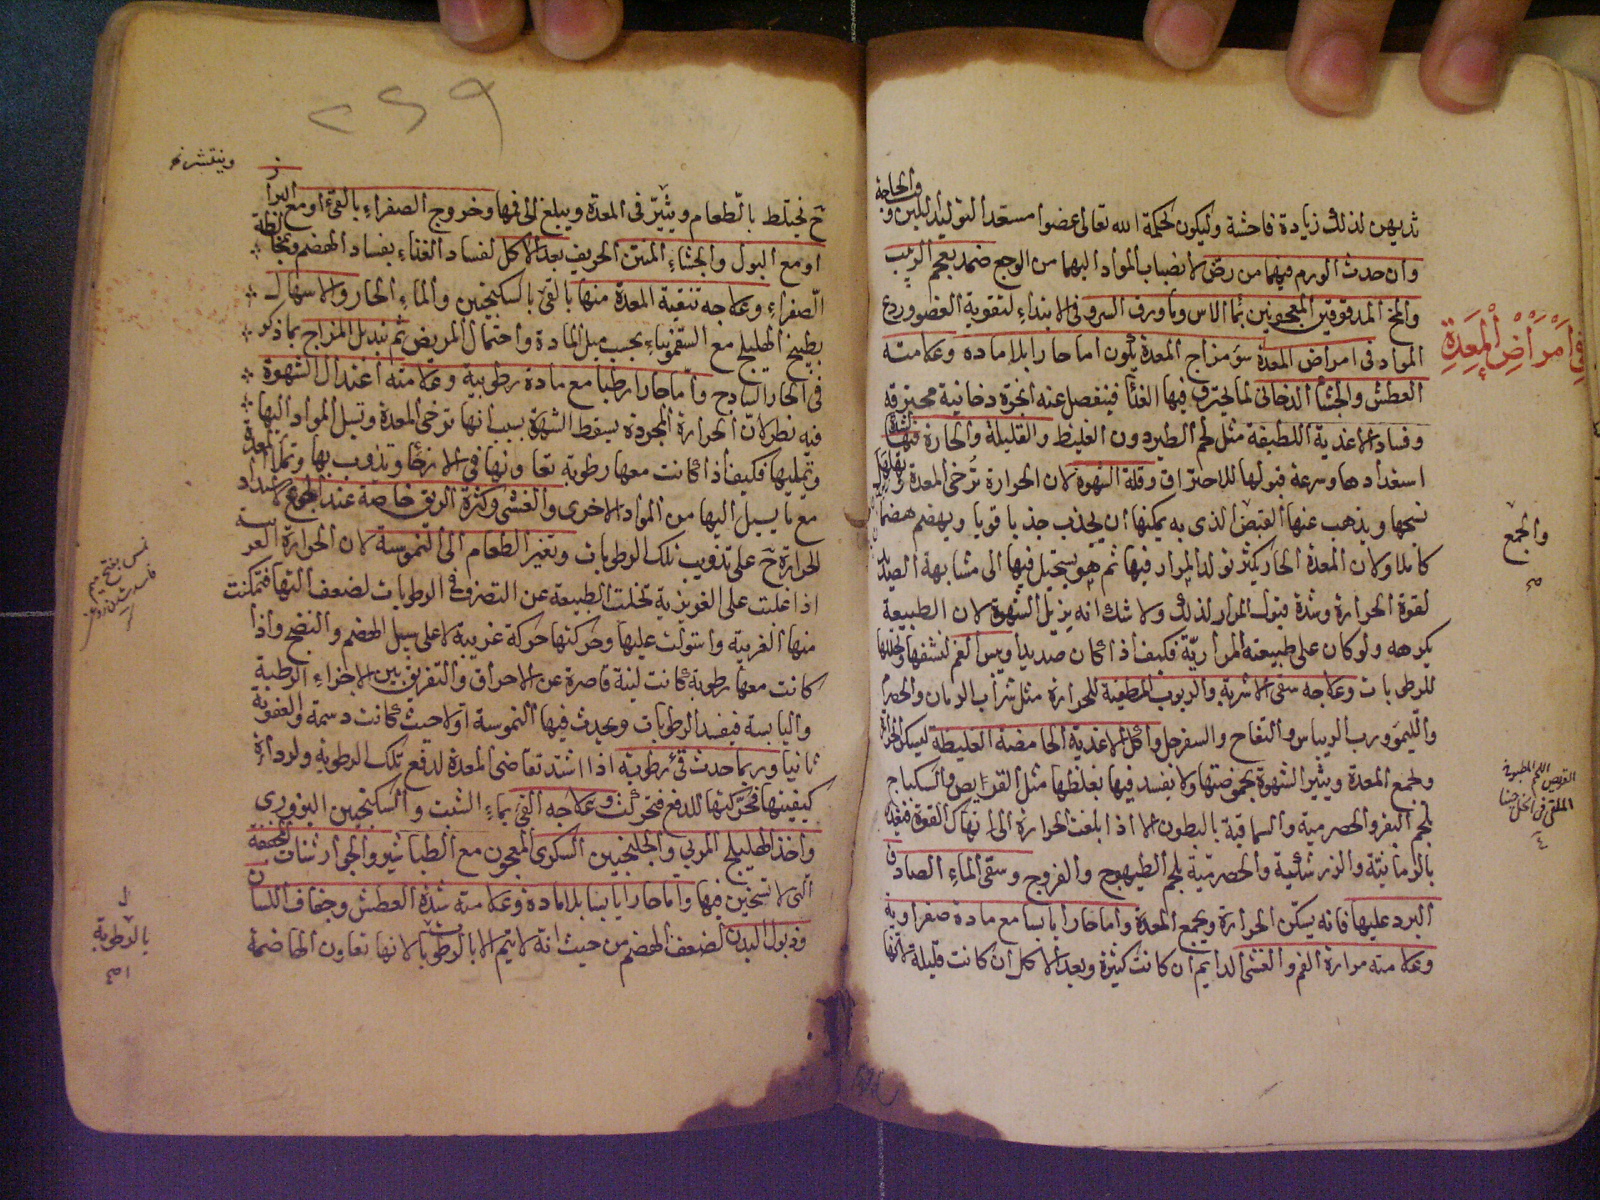 والحاجة
ثديهن لذلك زيادة فاحشة وليكون لحكمة الله تعالى عضوا مستعدا لتوليد اللبن و
وان حدث الورم فيهما من رض لانصباب المواد اليهما من الوجع ضمد بعجم الزبيب
والمخ المدقوقين المعجونين بماء الاس وماء ورق السرو في الابتداء لتقوية العضو وردع
المواد في امراض المعدة سوء مزاج المعدة يكون اما حارا بلا مادة وعلامته
في امراض المعدة
العطش والجشأ الدخاني لما يحترق فيها الغذأ فينفصل عنه ابخرة دخانية محترقة
وفساد الاغذية اللطيفة مثل لحم الطير دون الغليظ والقليلة والحارة فيها لشدة
استعدادها وسرعة قبولها للاحتراق وقلة الشهوة لان الحرارة ترخى المعدة
نسجها ويذهب عنها القبض الذى به يمكنها ان يجذب جذبا قويا ويهضم هضما
والجمع
صح
كاملا ولان المعدة الحار يكثر تولد المرار فيها ثم هو يستحيل فيها الى مشابهة الصديد
لقوة الحرارة وشدة قبول المرار لذلك ولا شك انه يزيل الشهوة لان الطبيعة
يكرهه ولو كان على طبيعته المرارية فكيف اذا كان صديدا ويبس الفم لنشفها وتحللها
للرطوبات وعلاجه سقى الاشربة والربوب المطفية للحرارة مثل شراب الرمان والحصرم
والليمو ورب الريباس والتفاح والسفرجل واكل الاغذية الحامضة الغليظة ليسكن الحرارة
وجمع المعدة ويثير الشهوة بحموضتها ولا يفسد فيها بغلظها مثل القرايص والسكباج
القريص اللحم المطبوخ
الملقى فى الخل
بلحم البقر والحصرمية والسماقية بالبطون الا اذا ابلغت الحرارة الى انهاك القوة فيغذ
بالرمانية والزرشكية والحصرمية بلحم الطيهوج والفروج وسقى الماء الصادق
البرد عليها فانه يسكن الحرارة ويجمع المعدة واما حارا يابسا مع مادة صفراوية
وعلامته مرارة الفم والغشى الدايم ان كانت كثيرة وبعد الاكل ان كانت قليلة لانها
٢٤٩
وينتشر
ح يختلط بالطعام ويثير في المعدة ويبلغ الى فمها وخروج الصفراء بالقئ او مع البراز
او مع البول والجشاء المنتن الحريف بعد الاكل لفساد الغذاء بفساد الهضم ومخالطة
الصفراء وعلاجه تنقية المعدة منها بالقئ بالسكنجبين والماء الحار والاسهال
بطبيخ الهليلج مع السقمونياء بحسب ميل المادة واحتمال المريض ثم تبديل المزاج بما ذكر
في الحار الساذج واما حارا رطبا مع مادة رطوبية وعلامته اعتدال الشهوة
فيه نظر لان الحرارة المجردة يسقط الشهوة بسبب انها ترخى المعدة وتسيل المواد اليها
وتمليها فكيف اذا كانت معها رطوبة تعاونها في الارخاء وتذوب بها وتملأ المعدة
مع ما يسيل اليها من المواد الاخرى والغشى وكثرة الريق خاصة عند الجوع لاشتداد
الحرارة ح على تذويب تلك الرطوبات وتغير الطعام الى النموسة لان الحرارة الغريبة
اذا غلبت على الغريزية تخلت الطبيعة عن التصرف في الرطوبات لضعف التها فتمكنت
منها الغريبة واستولت عليها وحركتها حركة غريبة لا على سبيل الهضم والنضج واذا
كانت معها رطوبة كانت لينة قاصرة عن الاحراق والتفريق بين الاجزاء الرطبة
واليابسة فيفسد الرطوبات ويحدث فيها النموسة اولا حيث كانت دسمة والعفونة
ثانيا وربما حدث قئ رطوبة اذا اشتد تقاضى المعدة لدفع تلك الرطوبة ولرداءة
كيفيتها فحركتها للدفع فتحركت وعلاجه القئ بماء الشبت والسكنجبين البزورى
واخذ الهليلج المربي والجلنجبين السكرى المعجون مع الطباشير والجوارشنات المجففة
التى لا تسخين فيها واما حارا يابسا بلا مادة وعلامته شدة العطش وجفاف اللسان
وذبول البدن لضعف الهضم من حيث انه لا يتم الا بالرطوبات لانها تعاون الهاضمة
بالرطوبة
صح